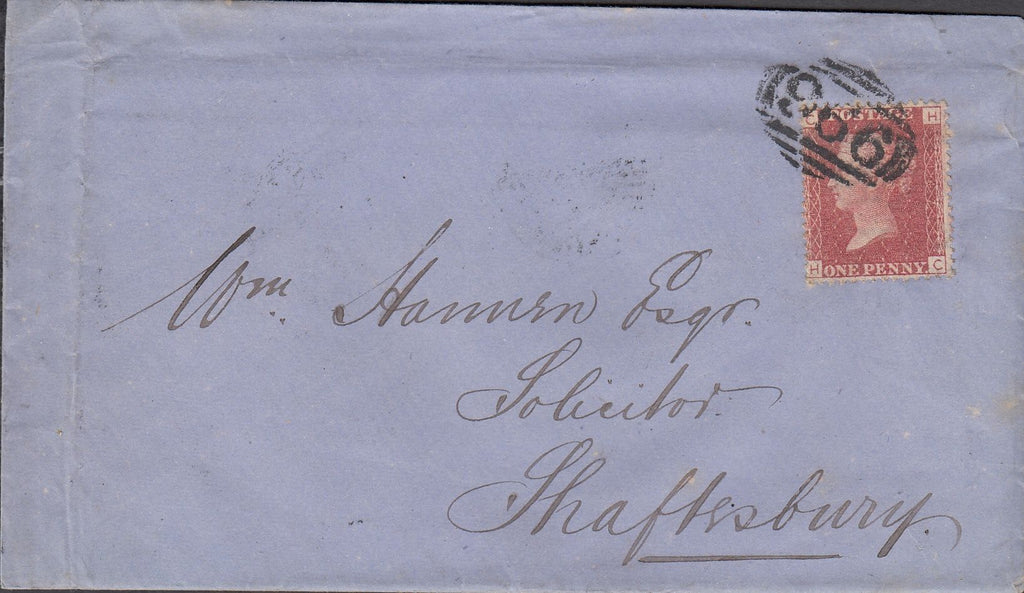 C POSTAGE H
H ONE PENNY. C
Wm Hannen Esqr.
Solicitor
Shaftesbury.